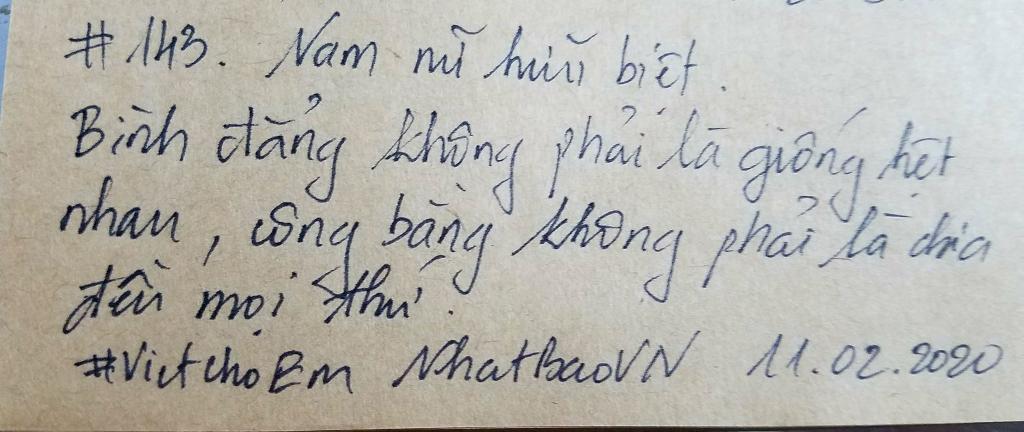 #143. Nam nữ hữu biệt.
Bình đẳng không phải là giống hệt
nhau, công bằng không phải là chia
đều mọi thứ.
#VietchoEm NhatBaoVN 11.02.2020